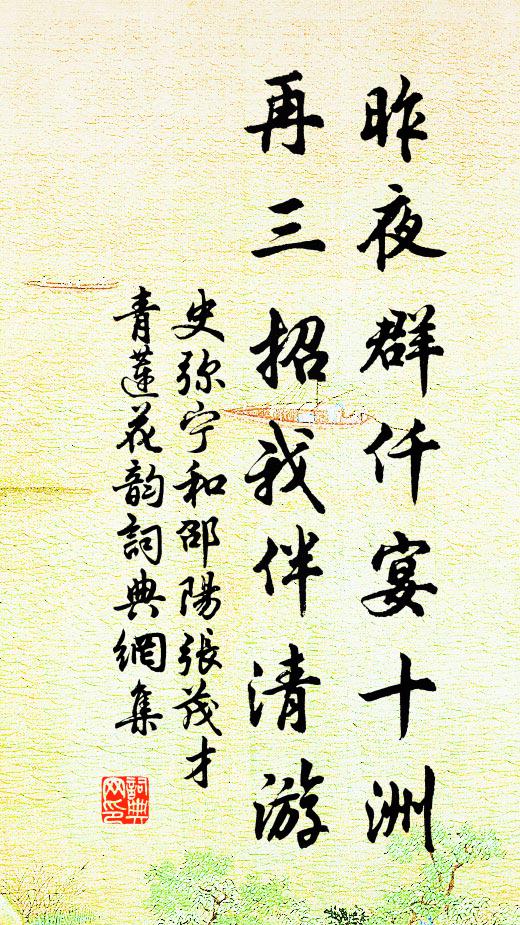 昨夜群仟宴十洲
再三招我伴清游
史弥宁和邵陽張茂才
青蓮花韵詞典網集
詞典
网印